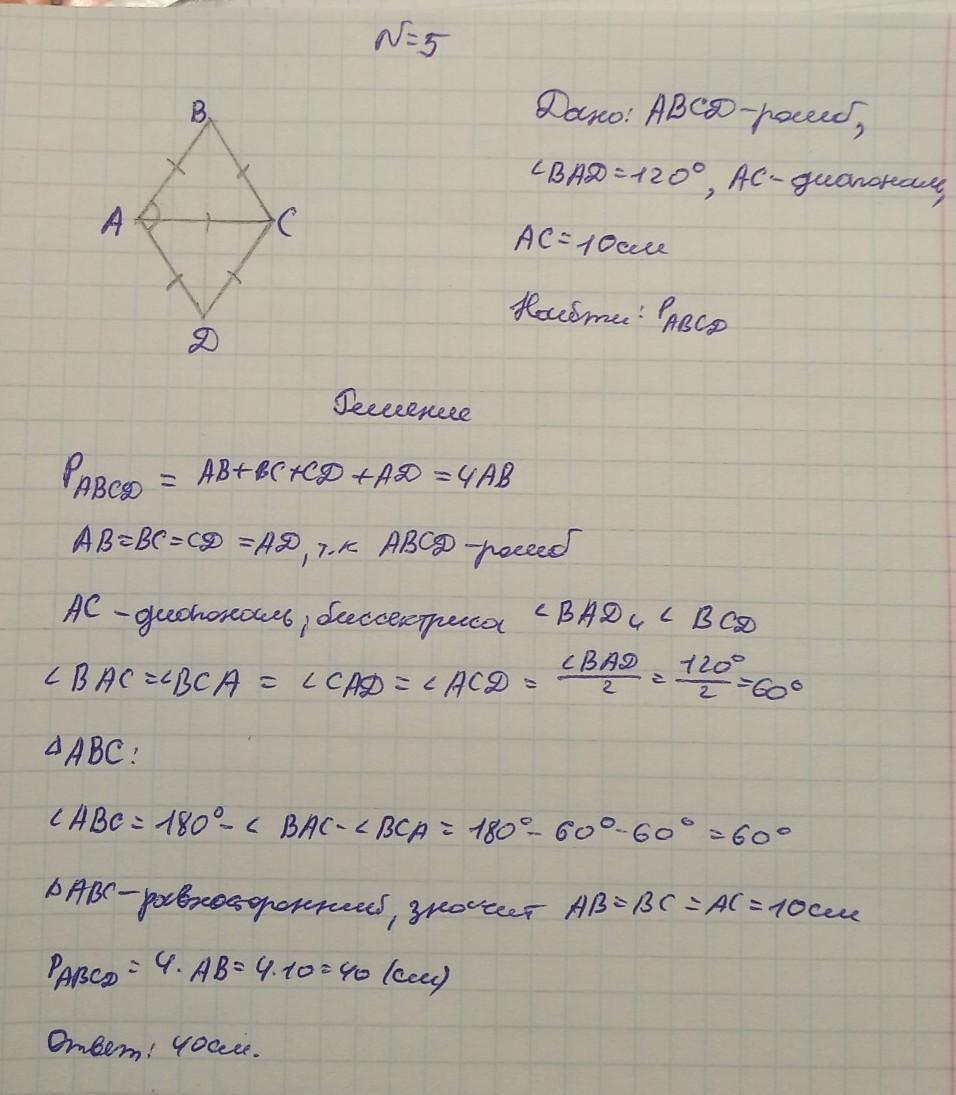 N=5
B
A
C
D
Дано: ABCD-ромб,
∠BAD=120°, AC-диагональ,
AC=10см
Найти: P_ABCD
Решение
P_ABCD = AB+BC+CD+AD=4AB
AB=BC=CD=AD, т.к ABCD-ромб
AC-диагональ, биссектриса ∠BAD и ∠BCD
∠BAC=∠BCA = ∠CAD=∠ACD = ∠BAD/2 = 120°/2 =60°
△ABC:
∠ABC=180°-∠BAC-∠BCA=180°-60°-60°=60°
△ABC-равносторонний, значит AB=BC=AC=10см
P_ABCD=4·AB=4·10=40(см)
Ответ: 40см.